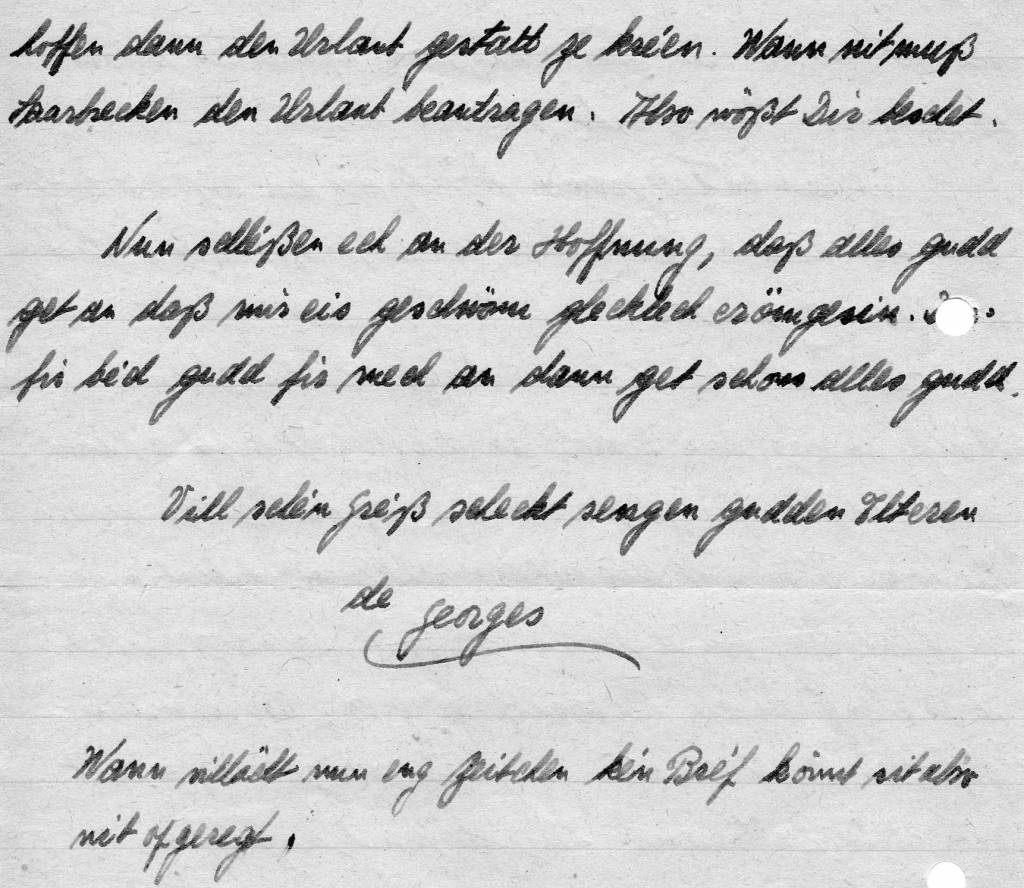 hoffen dann den Urlaub gestatt ze kréen. Wann nit muß
Saarbrecken den Urlaub beantragen. Also wößt Dir bescheet.
Nun schléißen ech an der Hoffnung, daß alles gudd
get an daß mir eis geschwönn glecklech erömgesin.
fir béd gudd fir mech an dann get schons alles gudd.
Vill schéin Greiß scheckt sengen gudden Elteren
de Georges
Wann villäicht nun eng Zeitchen kén Bréf könnt sit also
nit opgeregt.